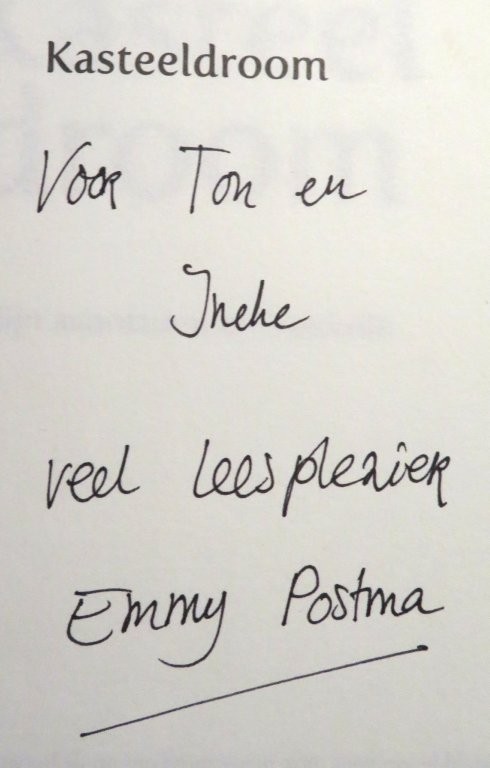 Kasteeldroom
Voor Ton en
Ineke
veel leesplezier
Emmy Postma